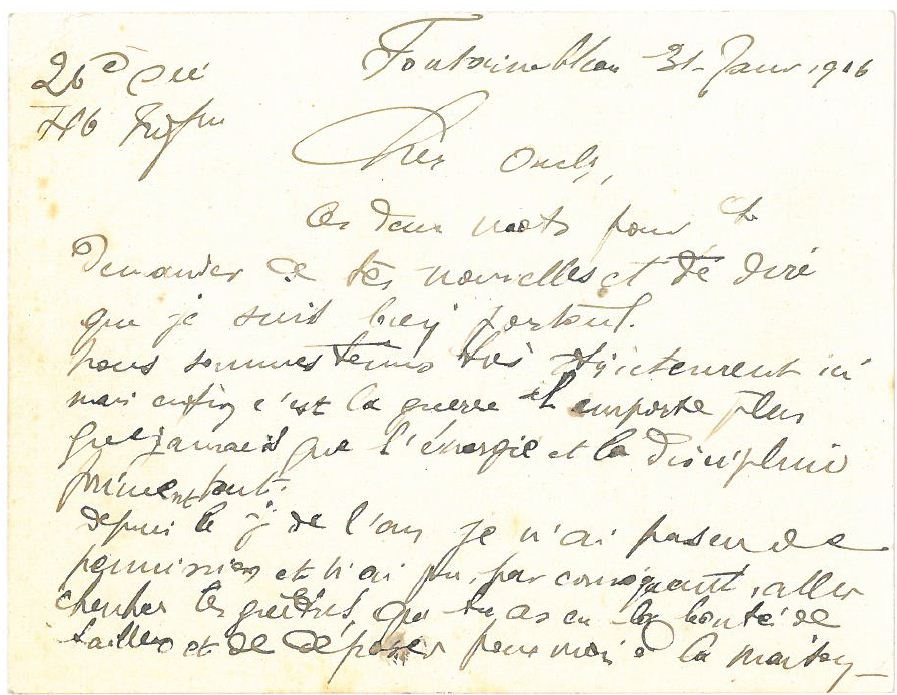 Fontainebleau 31 Janv 1916
26e Cie
46
Cher Oncle,
Ces deux mots pour te
demander de tes nouvelles et te dire
que je suis bien portant.
Nous sommes tenus très strictement ici
mais enfin c'est la guerre et importe plus
que jamais que l'énergie et la discipline
priment tout.
depuis le j. de l'an je n'ai pas eu de
permission et n'ai pu, par conséquent, aller
chercher les guêtres que tu as eu la bonté de
tailler et de déposer pour moi à la maison